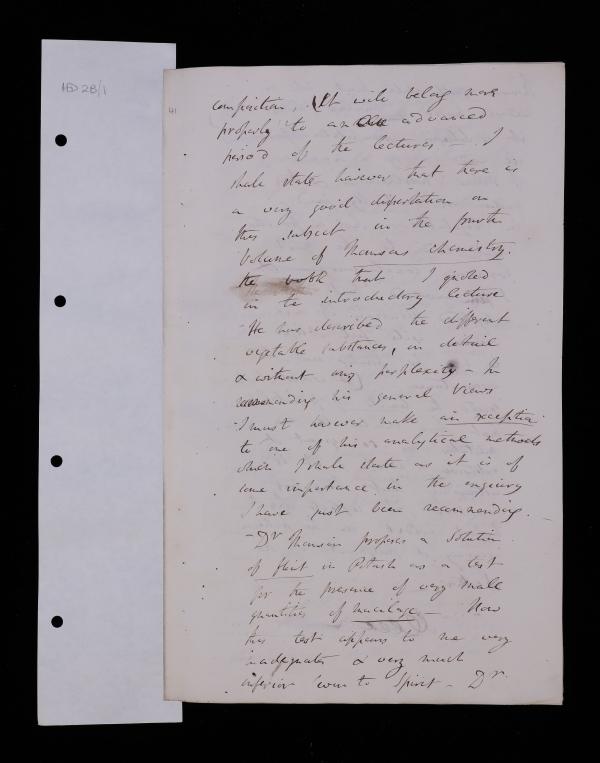 HD 2B/1
41
composition, It will belong more
properly to an advanced
period of the lectures - I
shall state however that there is
a very good dissertation on
this subject in the fourth
Volume of Thomsons chemistry.
the book that I quoted
in the introductory lecture
He has described the different
vegetable substances, in detail
& without any perplexity - In
recommending his general views
I must however make an exception
to one of his analytical methods
which I shall state as it is of
some importance in the enquiry
I have just been recommending. -
- Dr Thomson proposes a solution
of flint in Potash as a test
for the presence of very small
quantities of mucilage - Now
this test appears to me very
inadequate & very much
inferior even to Spirit - Dr